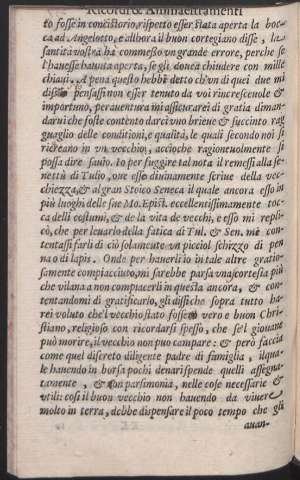 Ricordi & Ammaestramenti
to fosse in concistorio, rispetto esser stata aperta la boc-
ca ad Angelotto, e allhora il buon cortegiano disse, la
santità vostra hà commesso vn grande errore, perche se
l'hauesse hauuta aperta, se gli douea chiudere con mille
chiaui. A pena questo hebbi detto ch'vn di quei due mi
disse, pensassi non esser tenuto da voi rincresceuole &
importuno, perauentura mi assicurarei di gratia diman-
darui che foste contento darci vno brieue & succinto rag
guaglio delle conditioni, e qualità, le quali secondo noi si
ricreano in vn vecchio, accioche ragioneuolmente si
possa dire sauio. Io per fuggire tal nota il remessi alla se-
nettù di Tulio, oue esso diuinamente scriue della vec-
chiezza, & al gran Stoico Seneca il quale ancora esso in
più luoghi delle sue Mo. Epist. eccellentissimamente toc-
ca delli costumi, & de la vita de vecchi, e esso mi repli-
cò, che per leuarlo della fatica di Tul. & Sen. mi con-
tentassi farli di ciò solamente vn picciol schizzo di pen
na o di lapis. Onde per hauerli io in tale altre gratio-
samente compiacciuto, mi sarebbe parsa vna scortesia più
che vilana a non compiacerli in questa ancora, & con-
tentandomi di gratificarlo, gli dissi che sopra tutto ha-
rei voluto che'l vecchio stato fosse vero e buon Chri-
stiano, religioso con ricordarsi spesso, che se'l giouane
può morire, il vecchio non puo campare: & però faccia
come quel discreto diligente padre di famiglia, il qua-
le hauendo in borsa pochi denari spende quelli assegna-
tamente, & con parsimonia, nelle cose necessarie &
vtili: così il buon vecchio non hauendo da viuere
molto in terra, debbe dispensare il poco tempo che gli
auan-